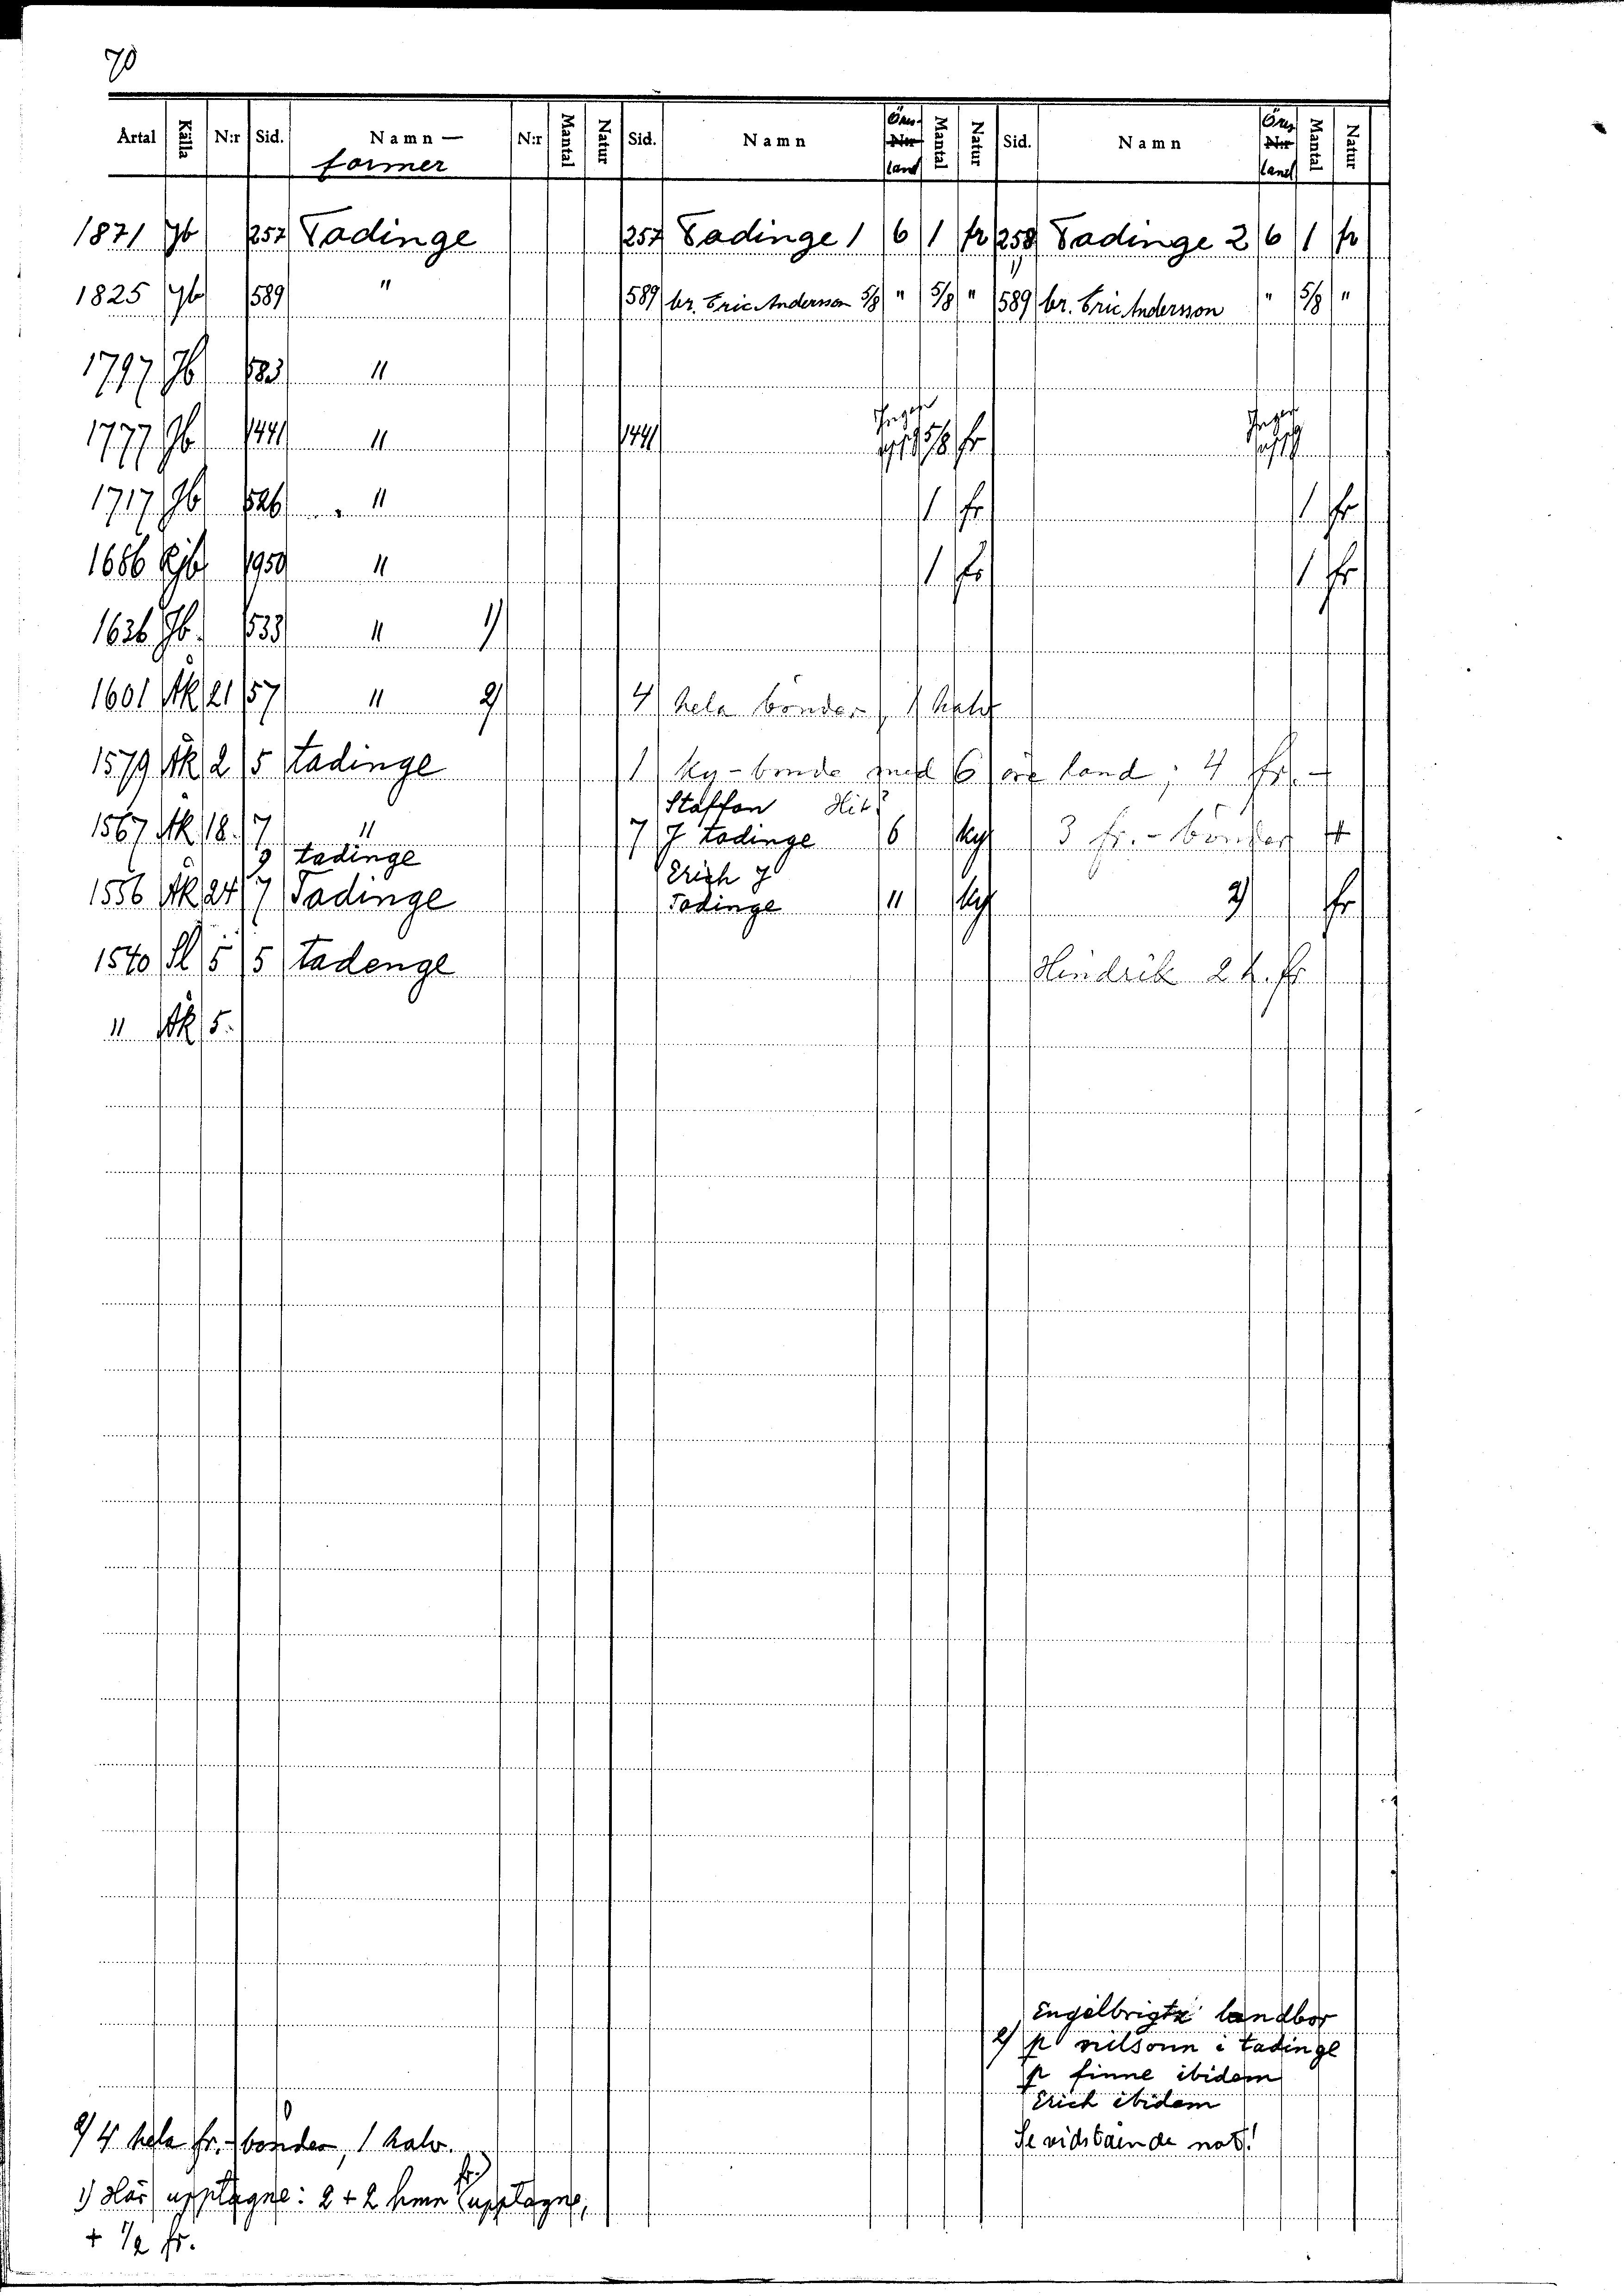 70
Årtal Källa N:r Sid. Namn— N:r Mantal Natur Sid. Namn Öres- N:r land Mantal Natur Sid. Namn Öres N:r land Mantal Natur
former
1871 Jb 257 Tadinge 257 Tadinge 1 6 1 fr 258 Tadinge 2 6 1 fr
1825 Jb 589 " 589 br. Eric Andersson 5/8 " 5/8 " 589 br. Eric Andersson " 5/8 "
1797 Jb 583 "
1777 Jb 1441 " 1441 Ingen 5/8 fr Ingen
1717 Jb 526 " 1 fr 1 fr
1686 Rjb 1950 " 1 fr 1 fr
1636 Jb. 533 " 1)
1601 Åk 21 57 " 2) 4 hela bönder, 1 halv
1579 Åk 2 5 tadinge 1 ky-bonde med 6 öre land; 4 fr.-
Staffan Hit?
1567 Åk 18. 7 " 7 J tadinge 6 ky 3 fr.-bönder
9 tadinge
Erich J
1556 Åk 24 7 Tadinge Tadinge " ky 2) fr
1540 Sl 5 5 tadenge Hindrik 2 h. fr
" Åk 5.
Engelbrigtz landbor
2) p nilsonn i tadinge
p finne ibidem
Erich ibidem
Se vidstående not!
2) 4 hela fr.-bönder, 1 halv.
1) Här upptagne: 2 + 2 hmn (fr.) upptagne,
+ 1/2 fr.